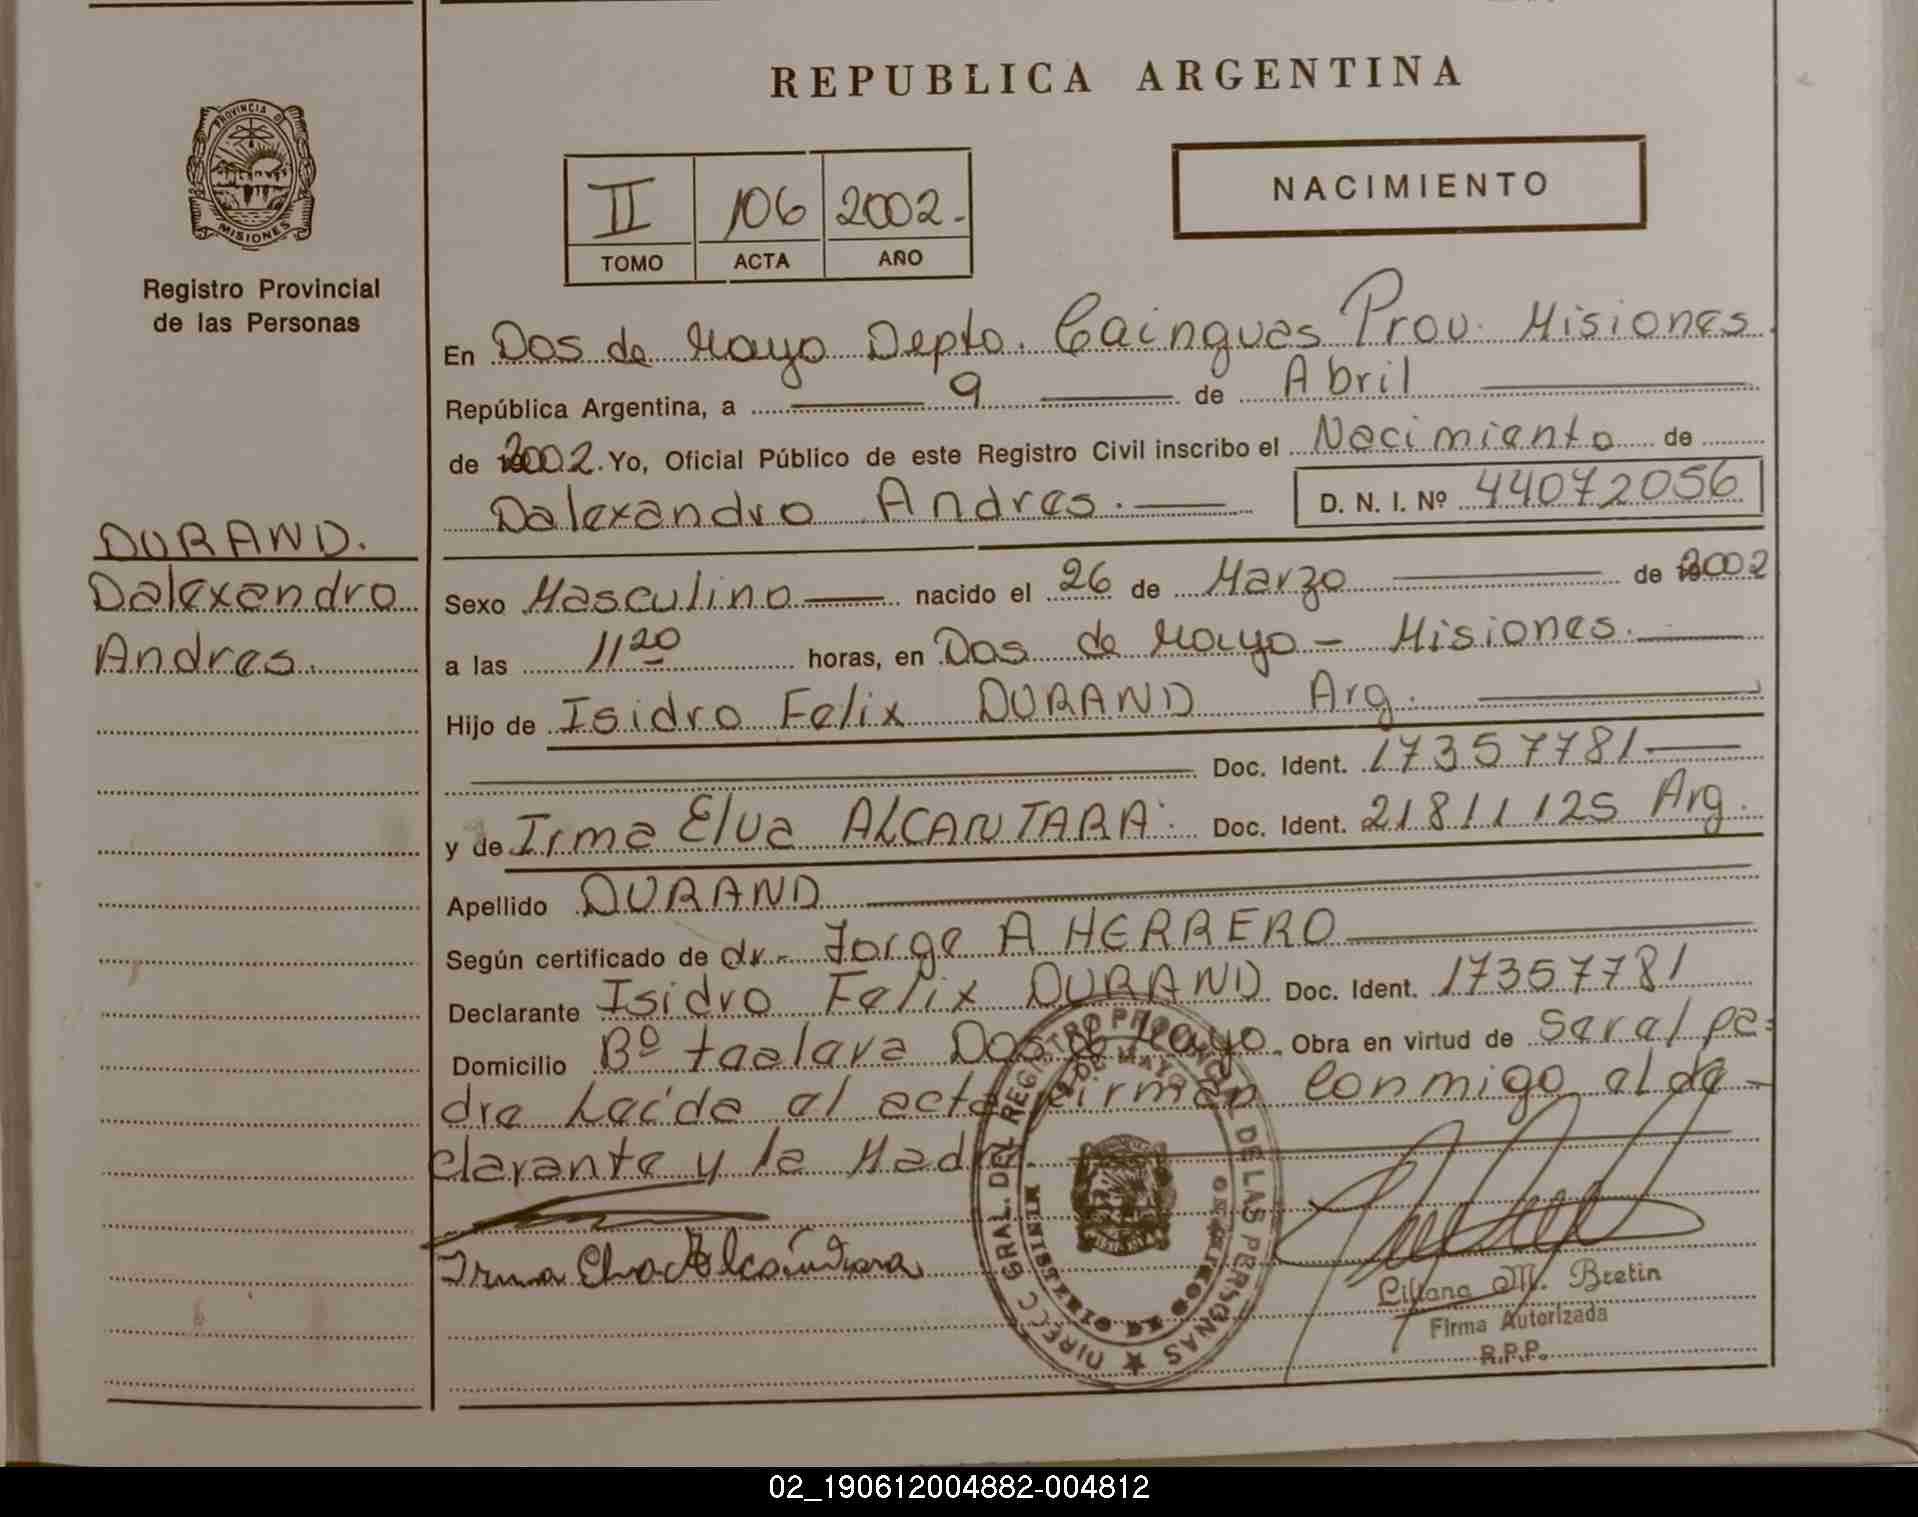 REPUBLICA ARGENTINA
PROVINCIA D
MISIONES
Registro Provincial
de las Personas
II 106 2002.
TOMO ACTA AÑO
NACIMIENTO
En Dos de Mayo Depto. Cainguas Prov. Misiones.
República Argentina, a 9 de Abril
de 2002. Yo, Oficial Público de este Registro Civil inscribo el Nacimiento de
Dalexandro Andres. D. N. I. Nº 44072056
DURAND.
Dalexandro
Andres.
Sexo Masculino nacido el 26 de Marzo de 2002
a las 11 20 horas, en Dos de Mayo - Misiones.
Hijo de Isidro Felix DURAND Arg.
Doc. Ident. 17357781
y de Irma Elva ALCANTARA. Doc. Ident. 21811125 Arg.
Apellido DURAND
Según certificado de dr. Jorge A HERRERO
Declarante Isidro Felix DURAND Doc. Ident. 17357781
Domicilio Bº Dos de Mayo. Obra en virtud de Ser el pa=
dre Leída el acta firman Conmigo el de-
clarante y la Madre.
Irma Elva Alcántara
DIRECC GRAL. DEL REGISTRO PROVINCIAL DE LAS PERSONAS
DOS DE MAYO
MISIONES
Liliana M. Bretin
Firma Autorizada
R.P.P.
02_190612004882-004812